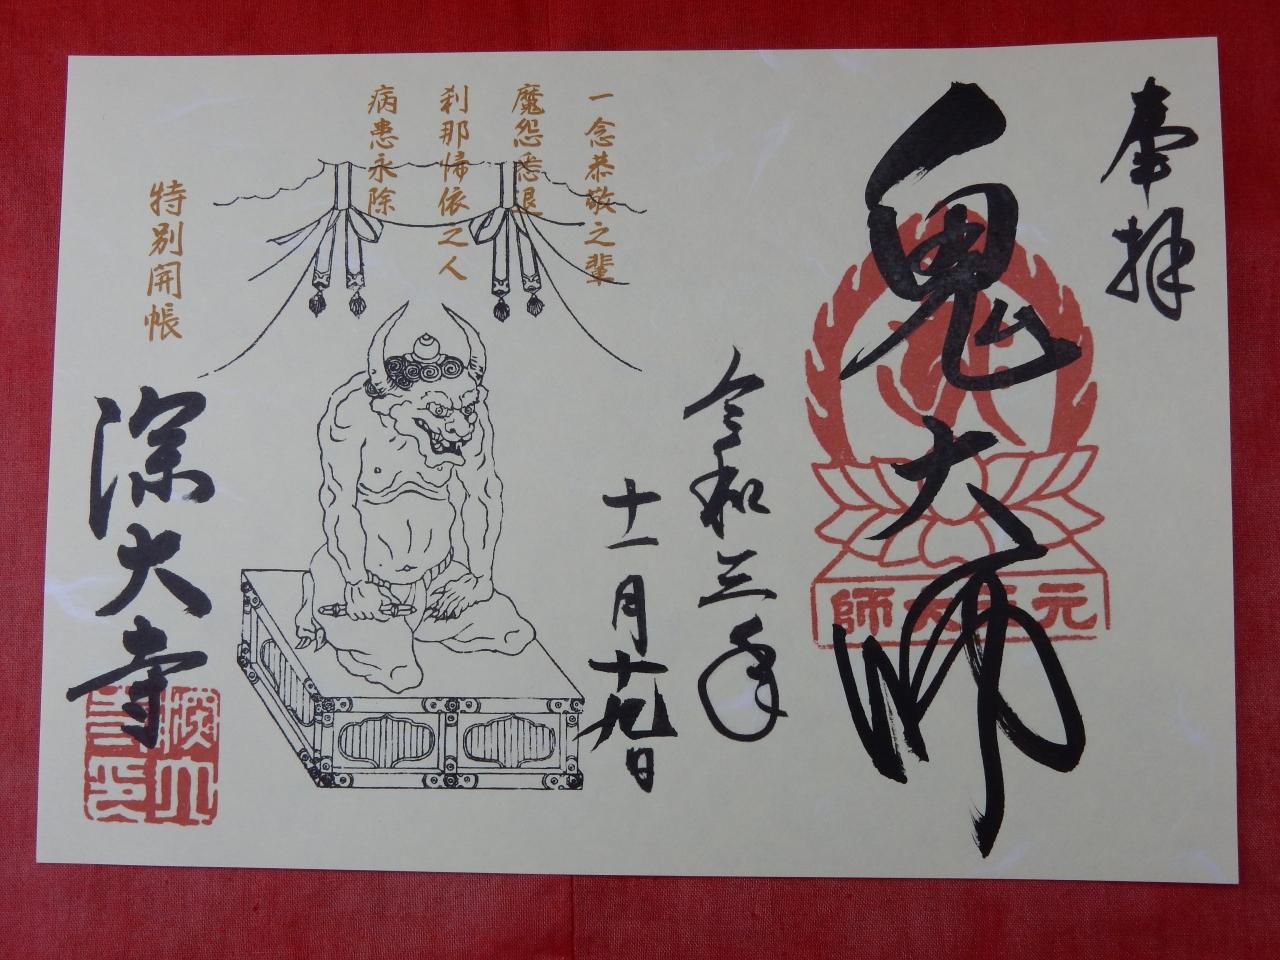 奉拝
鬼大師
元三大師
令和三年
十一月十九日
一念恭敬之輩
魔怨悉退
刹那帰依之人
病患永除
特別開帳
深大寺